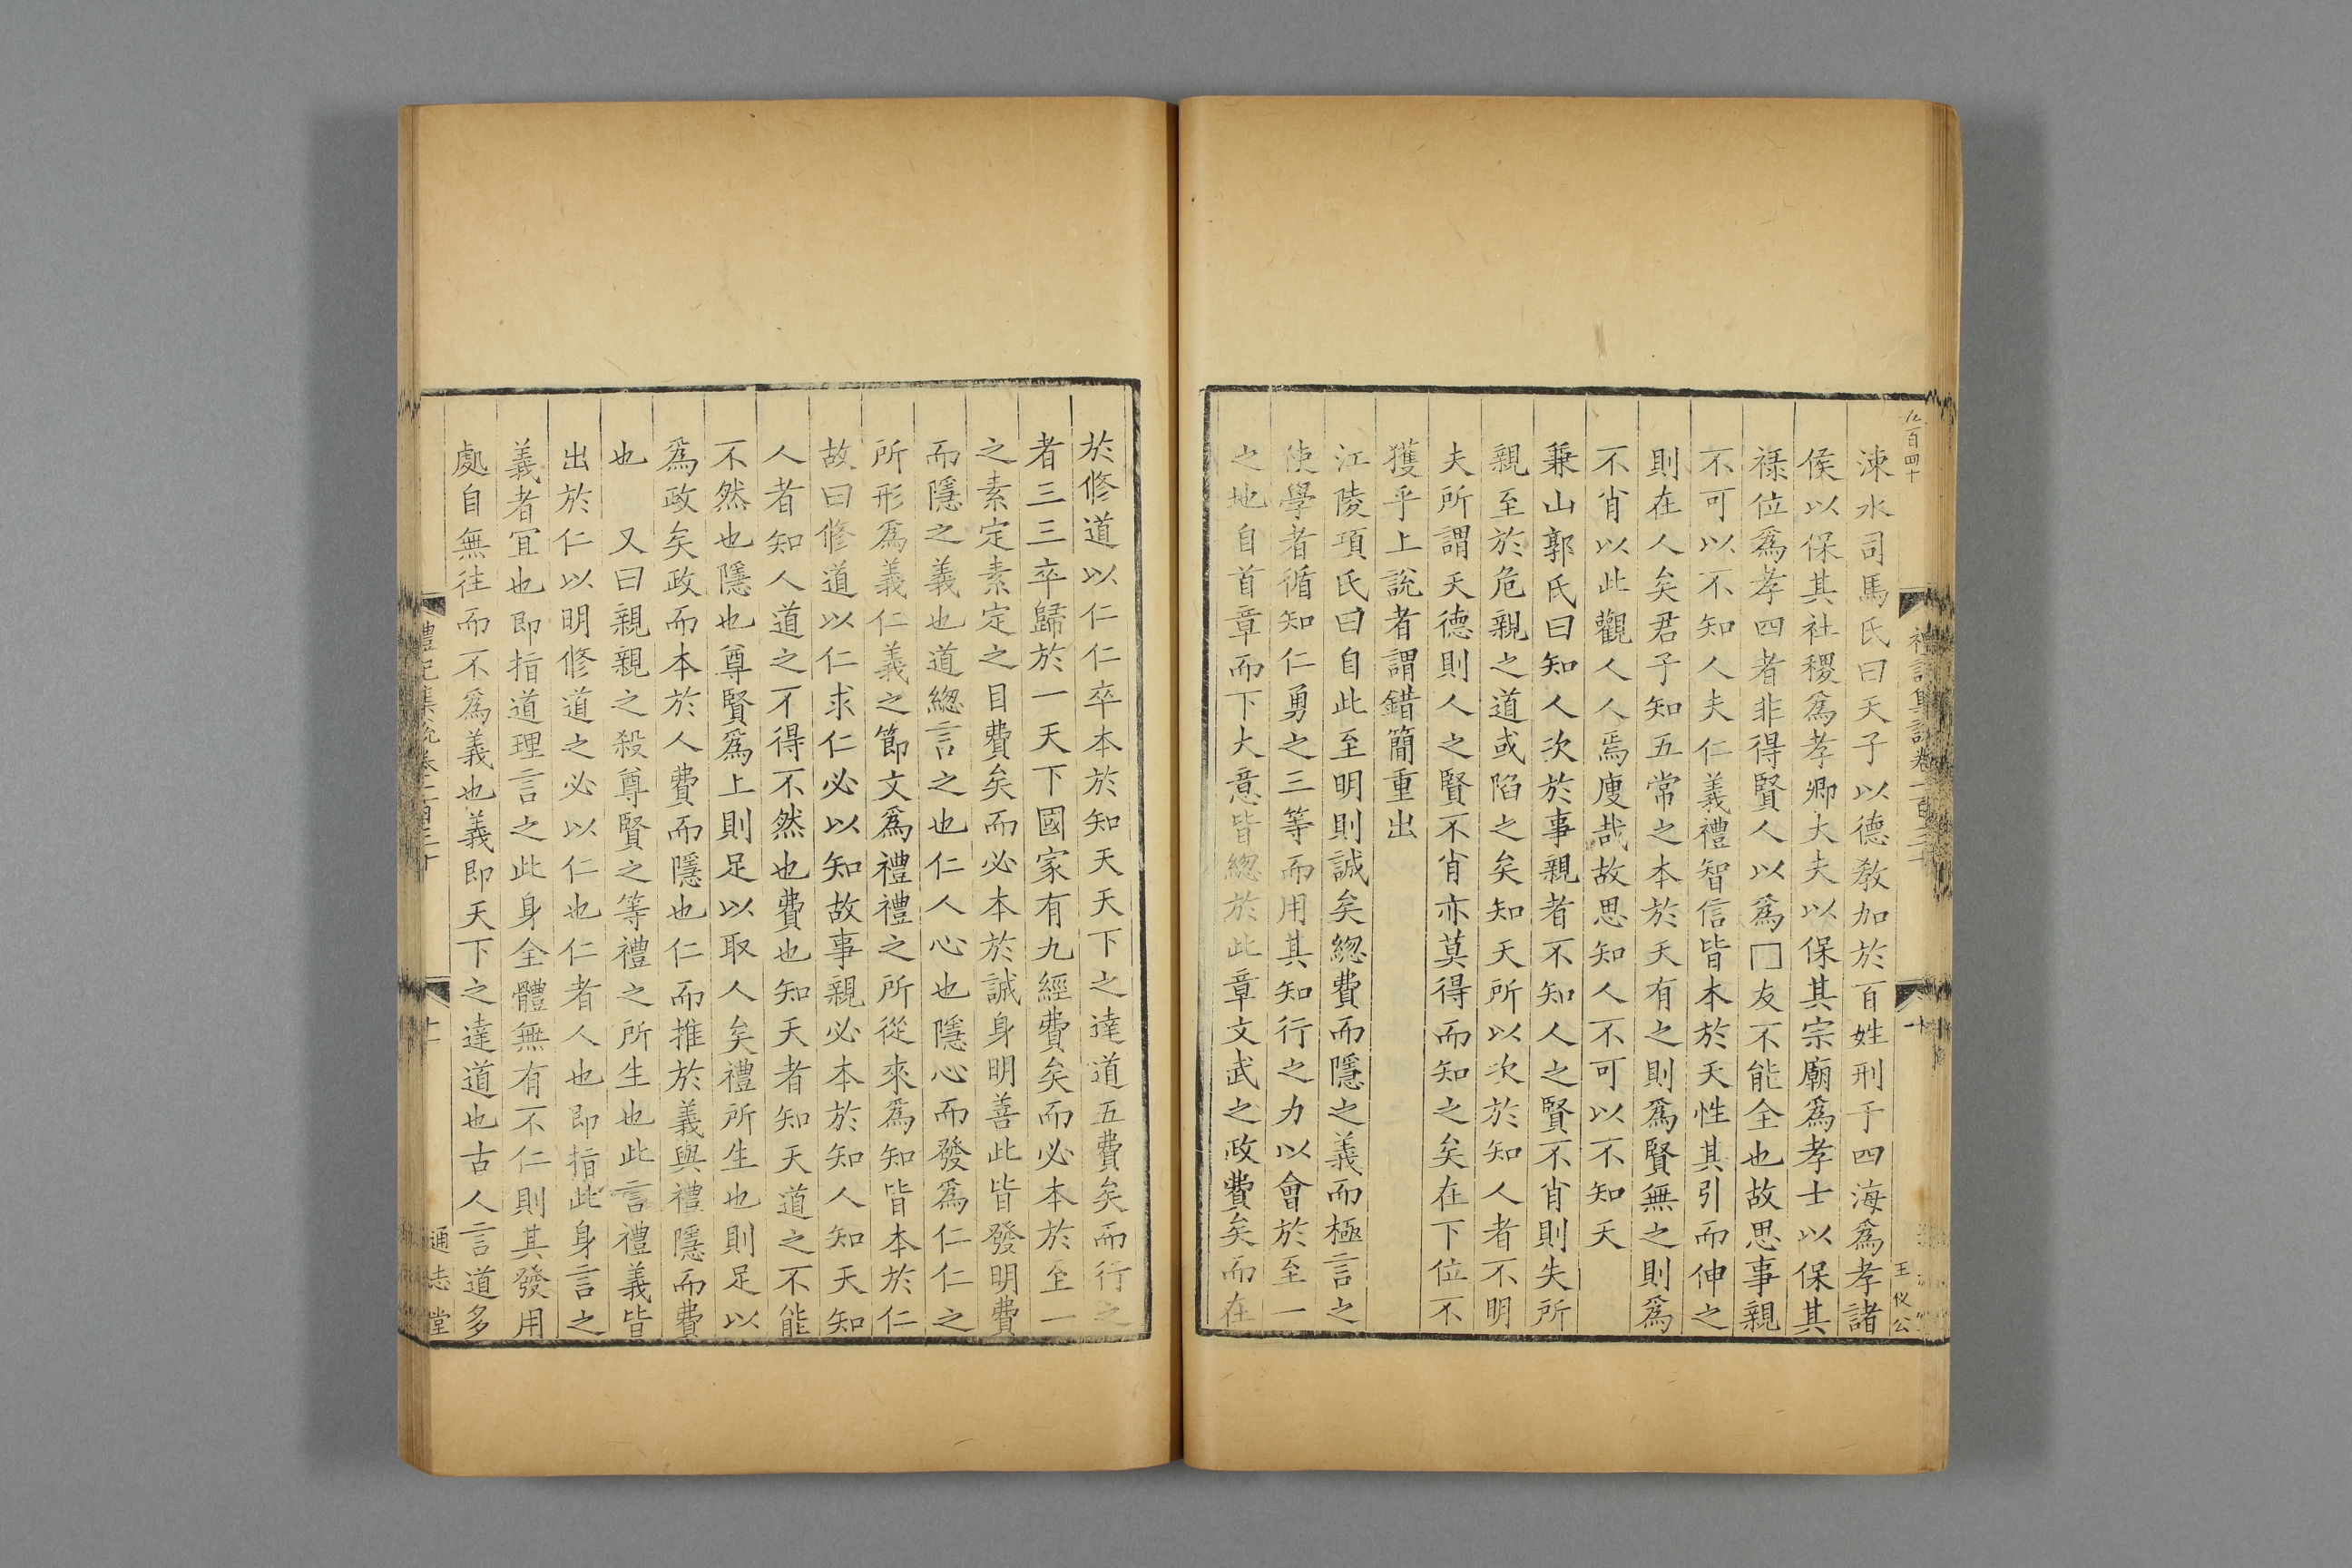 涑水司馬氏曰天子以德敎加於百姓刑于四海爲孝諸
侯以保其社稷爲孝卿大夫以保其宗廟爲孝士以保其
祿位爲孝四者非得賢人以爲□友不能全也故思事親
不可以不知人夫仁義禮智信皆本於天性其引而伸之
則在人矣君子知五常之本於天有之則爲賢無之則爲
不肖以此觀人人焉廋哉故思知人不可以不知天
兼山郭氏曰知人次於事親者不知人之賢不肖則失所
親至於危親之道或陷之矣知天所以次於知人者不明
夫所謂天德則人之賢不肖亦莫得而知之矣在下位不
獲乎上說者謂錯簡重出
江陵項氏曰自此至明則誠矣緫費而隱之義而極言之
使學者循知仁勇之三等而用其知行之力以會於至一
之地自首章而下大意皆緫於此章文武之政費矣而在
於修道以仁仁卒本於知天天下之達道五費矣而行之
者三三卒歸於一天下國家有九經費矣而必本於至一
之素定素定之目費矣而必本於誠身明善此皆發明費
而隱之義也道緫言之也仁人心也隱心而發爲仁仁之
所形爲義仁義之節文爲禮禮之所從來爲知皆本於仁
故曰修道以仁求仁必以知故事親必本於知人知天知
人者知人道之不得不然也費也知天者知天道之不能
不然也隱也尊賢爲上則足以取人矣禮所生也則足以
爲政矣政而本於人費而隱也仁而推於義與禮隱而費
也　又曰親親之殺尊賢之等禮之所生也此言禮義皆
出於仁以明修道之必以仁也仁者人也即指此身言之
義者宜也即指道理言之此身全體無有不仁則其發用
處自無往而不爲義也義即天下之達道也古人言道多
通志堂